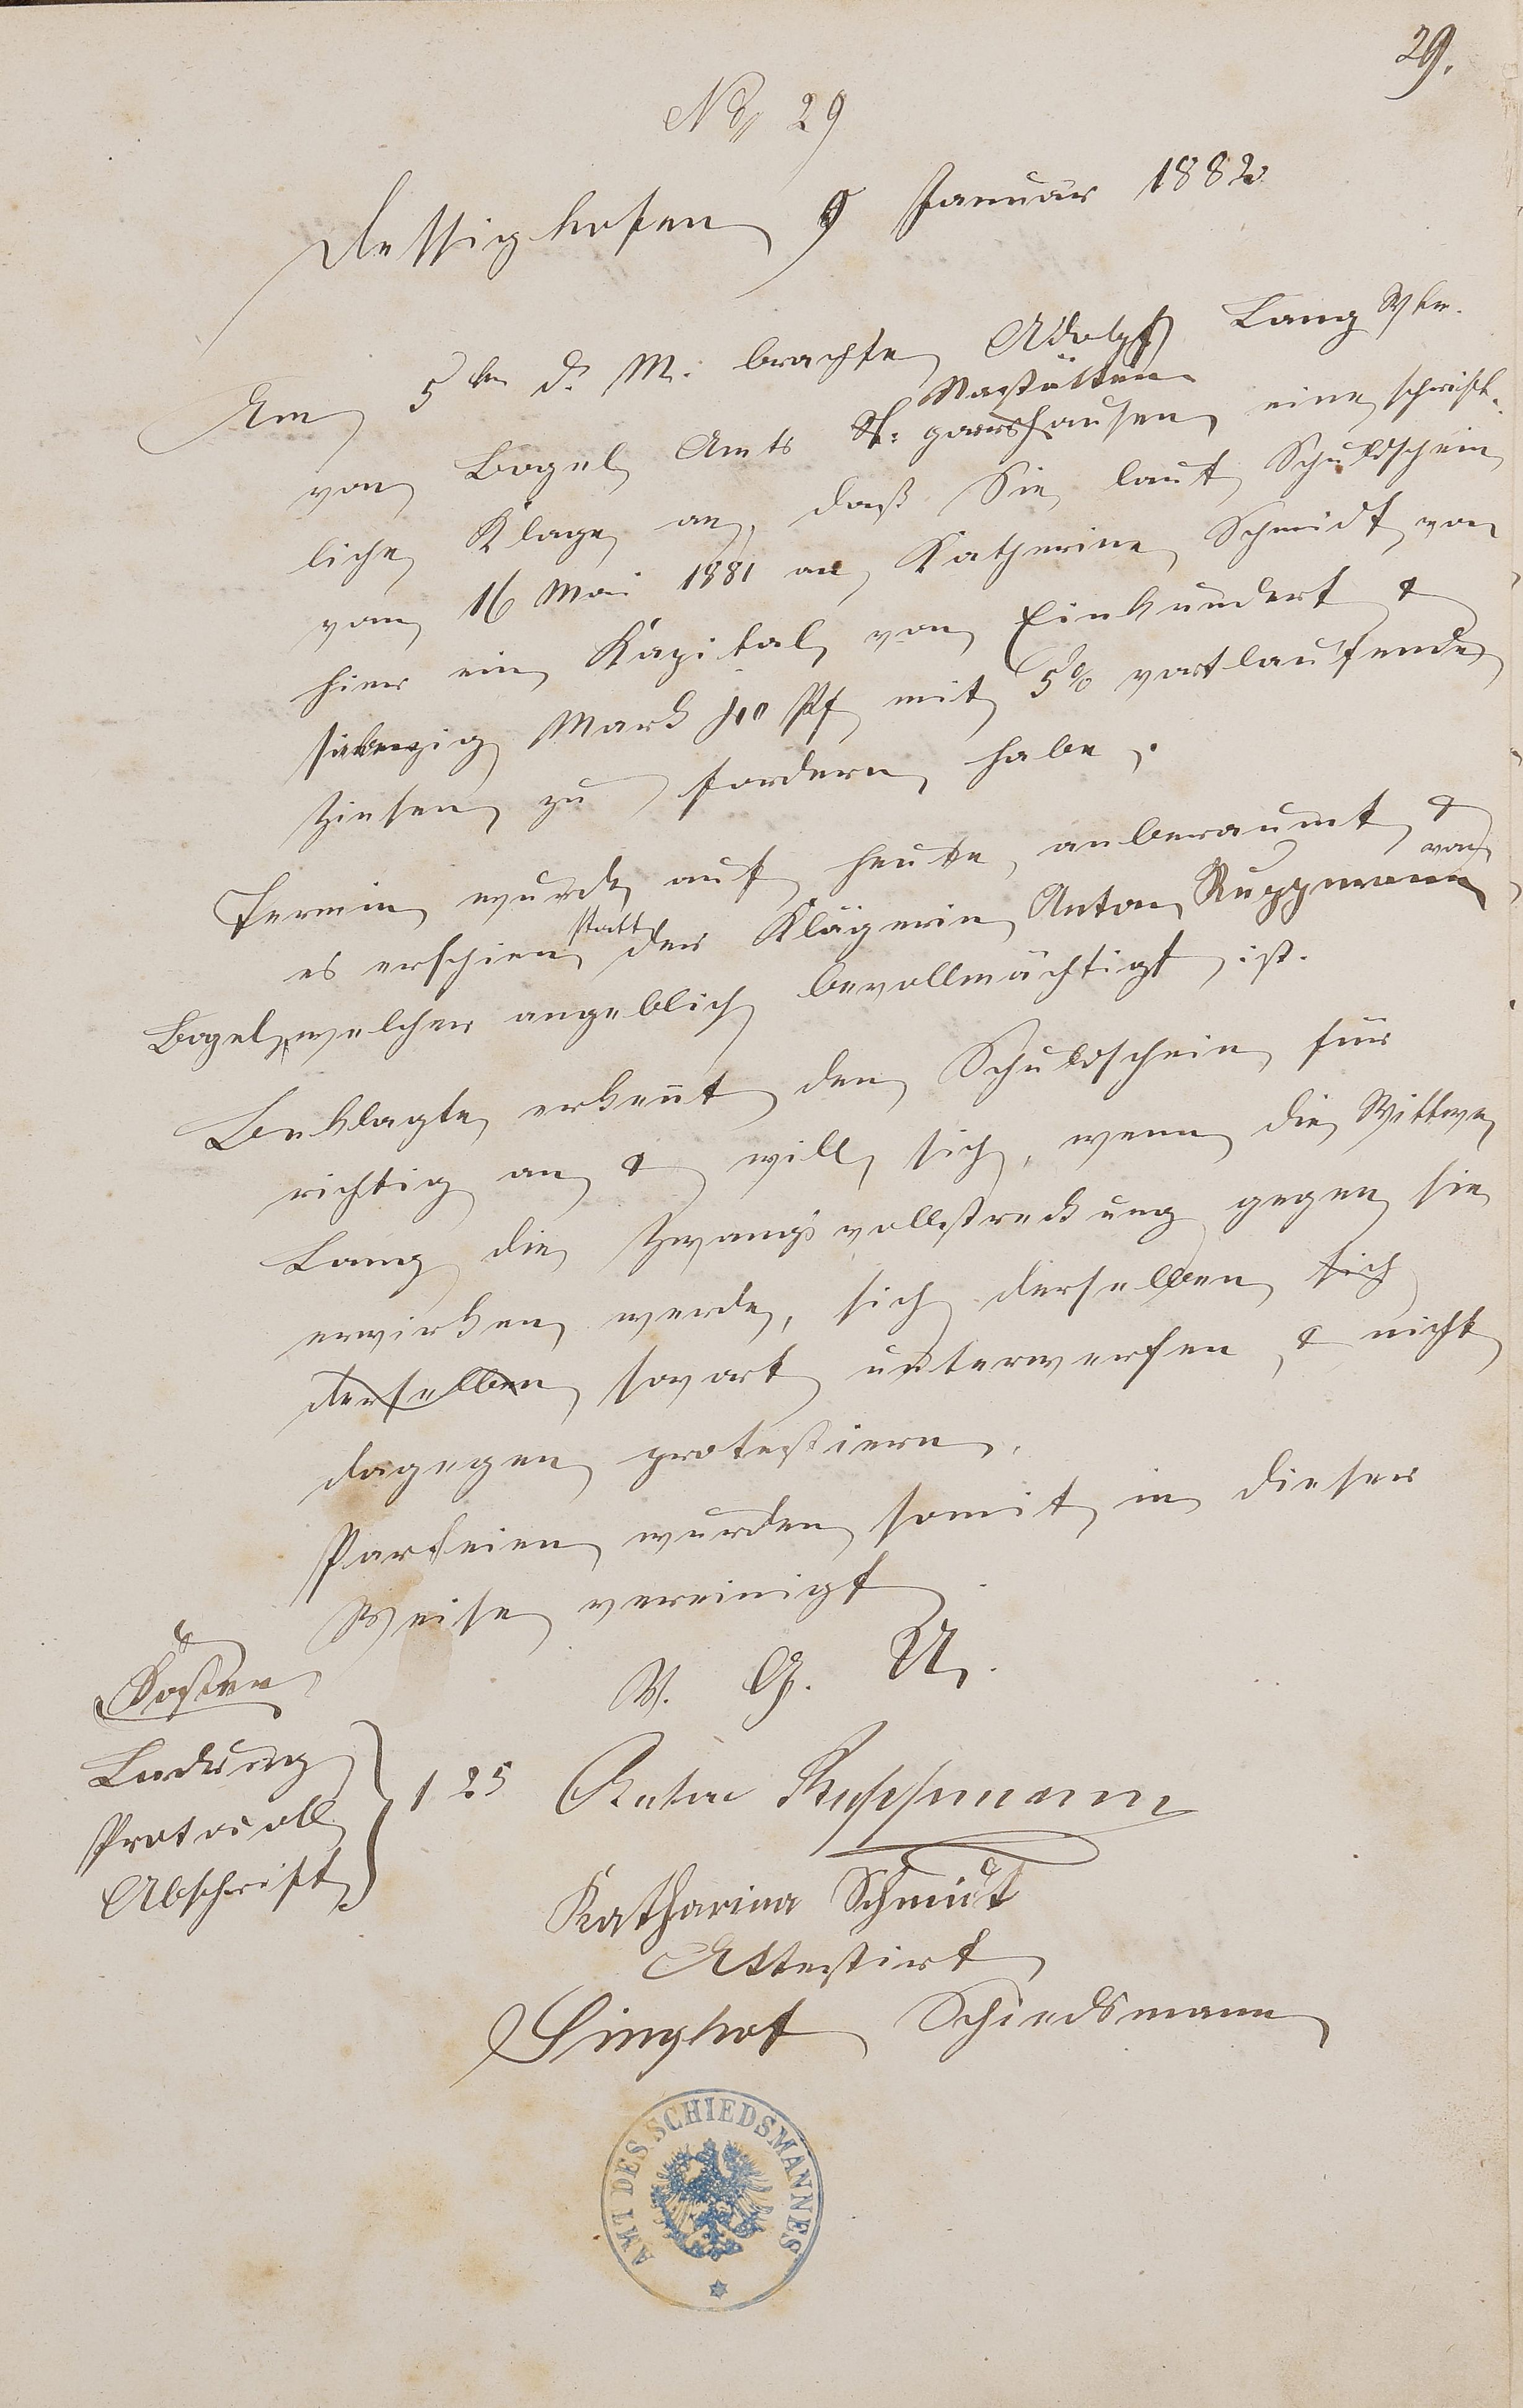 29.
No 29
Dessighofen 9 Januar 1882
Am 5ten d. M. brachte Adolph Lang Wtw.
Nastätten
von Bogel Amts St. goarshausen eine schrift-
liche Klage an, daß Sie laut Schuldschein
vom 16 Mai 1881 an Katherine Schmidt von
hier ein Kapital von Einhundert &
siebenzig Mark Pf mit 5% vortlaufende
Zinsen zu fordern habe.
Termin wurde auf heute anberaumt &
es erschien statt der Klägerin Anton Ruppmann von
Bogel, welcher angeblich bevollmächtigt ist.
Beklagte erkennt den Schuldschein für
richtig an & will sich, wenn die Wittwe
Lang die Zwangsvollstreckung gegen sie
erwirken werde, sich derselben sich
derselben sovort unterwerfen, & nicht
dagegen protestieren.
Parteien wurden somit in dieser
Weise vereinigt
V. G. U.
Kosten
Ladung
Protocoll
Abschrift
1 25
Anton Ruppmann
Katharina Schmidt
Attestirt
Singhof Schiedsmann
AMT DES SCHIEDSMANNES